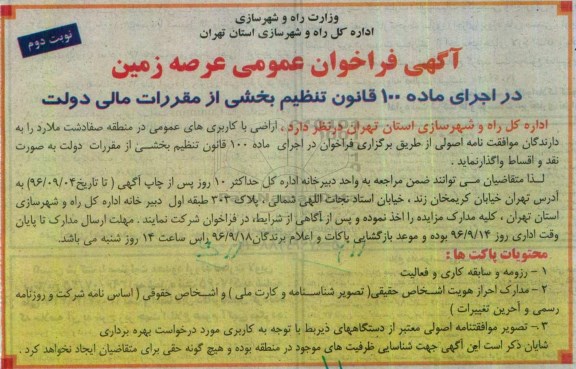 وزارت راه و شهرسازی
اداره کل راه و شهرسازی استان تهران
نوبت دوم
آگهی فراخوان عمومی عرصه زمین
در اجرای ماده ۱۰۰ قانون تنظیم بخشی از مقررات مالی دولت
اداره کل راه و شهرسازی استان تهران درنظر دارد ، اراضی با کاربری های عمومی در منطقه صفادشت ملارد را به
دارندگان موافقت نامه اصولی از طریق برگزاری فراخوان در اجرای ماده ۱۰۰ قانون تنظیم بخشی از مقررات دولت به صورت
نقد و اقساط واگذارنماید .
لـذا متقاضیان مـی توانند ضمن مراجعه به واحد دبیرخانه اداره کل حداکثر ۱۰ روز پس از چاپ آگهی ( تا تاریخ۹۶/۰۹/۰۴) به
آدرس تهران خیابان کریمخان زند ، خیابان استاد نجات اللهی شمالی ، پلاک ۳۰۳ طبقه اول دبیر خانه اداره کل راه و شهرسازی
استان تهران ، کلیه مدارک مزایده را اخذ نموده و پس از آگاهی از شرایط، در فراخوان شرکت نمایند . مهلت ارسال مدارک تا پایان
وقت اداری روز ۹۶/۹/۱۴ بوده و موعد بازگشایی پاکات و اعلام برندگان۹۶/۹/۱۸ راس ساعت ۱۴ روز شنبه می باشد.
محتویات پاکت ها :
۱ - رزومه و سابقه کاری و فعالیت
۲ - مدارک احراز هویت اشـخاص حقیقی( تصویر شناسـنامه و کارت ملی ) و اشـخاص حقوقی ( اساس نامه شرکت و روزنامه
رسمی و آخرین تغییرات )
۳ - تصویر موافقتنامه اصولی معتبر از دستگاههای ذیربط با توجه به کاربری مورد درخواست بهره برداری
شایان ذکر است این آگهی جهت شناسایی ظرفیت های موجود در منطقه بوده و هیچ گونه حقی برای متقاضیان ایجاد نخواهد کرد .